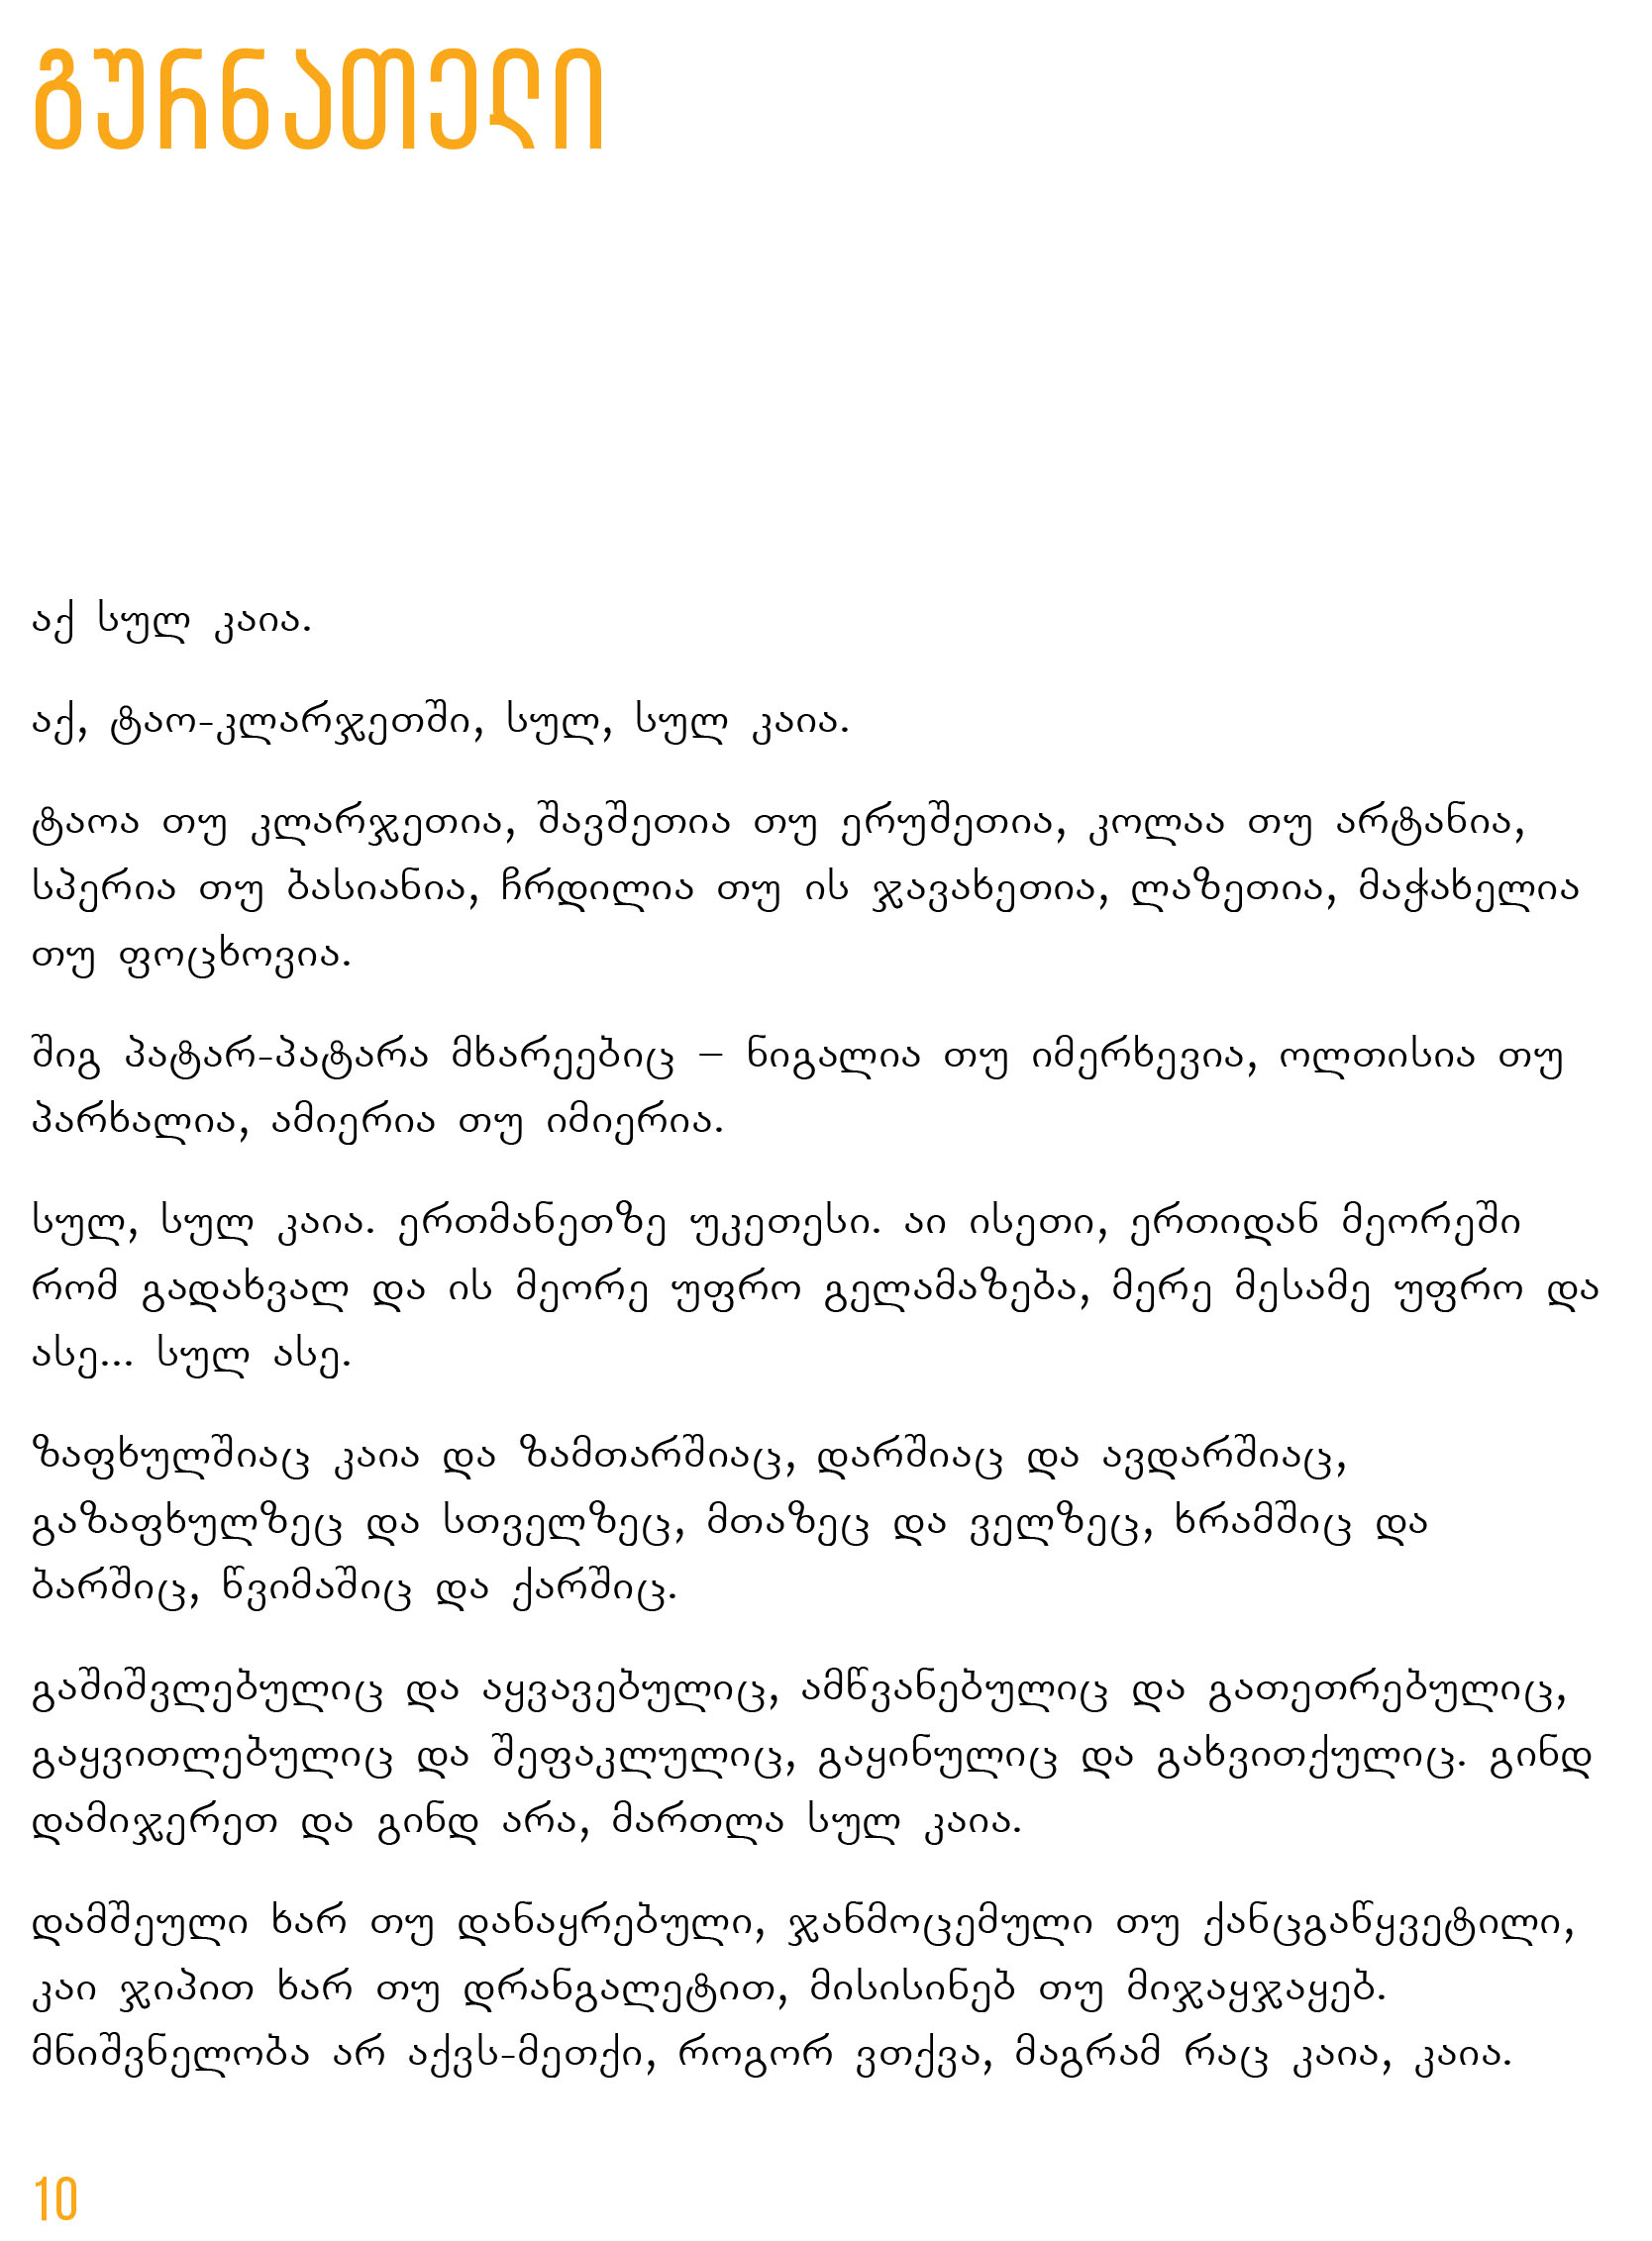 გურნათელი
აქ სულ კაია.
აქ, ტაო-კლარჯეთში, სულ, სულ კაია.
ტაოა თუ კლარჯეთია, შავშეთია თუ ერუშეთია, კოლაა თუ არტანია,
სპერია თუ ბასიანია, ჩრდილია თუ ის ჯავახეთია, ლაზეთია, მაჭახელია
თუ ფოცხოვია.
შიგ პატარ-პატარა მხარეებიც – ნიგალია თუ იმერხევია, ოლთისია თუ
პარხალია, ამიერია თუ იმიერია.
სულ, სულ კაია. ერთმანეთზე უკეთესი. აი ისეთი, ერთიდან მეორეში
რომ გადახვალ და ის მეორე უფრო გელამაზება, მერე მესამე უფრო და
ასე... სულ ასე.
ზაფხულშიაც კაია და ზამთარშიაც, დარშიაც და ავდარშიაც,
გაზაფხულზეც და სთველზეც, მთაზეც და ველზეც, ხრამშიც და
ბარშიც, წვიმაშიც და ქარშიც.
გაშიშვლებულიც და აყვავებულიც, ამწვანებულიც და გათეთრებულიც,
გაყვითლებულიც და შეფაკლულიც, გაყინულიც და გახვითქულიც. გინდ
დამიჯერეთ და გინდ არა, მართლა სულ კაია.
დამშეული ხარ თუ დანაყრებული, ჯანმოცემული თუ ქანცგაწყვეტილი,
კაი ჯიპით ხარ თუ დრანგალეტით, მისისინებ თუ მიჯაყჯაყებ.
მნიშვნელობა არ აქვს-მეთქი, როგორ ვთქვა, მაგრამ რაც კაია, კაია.
10